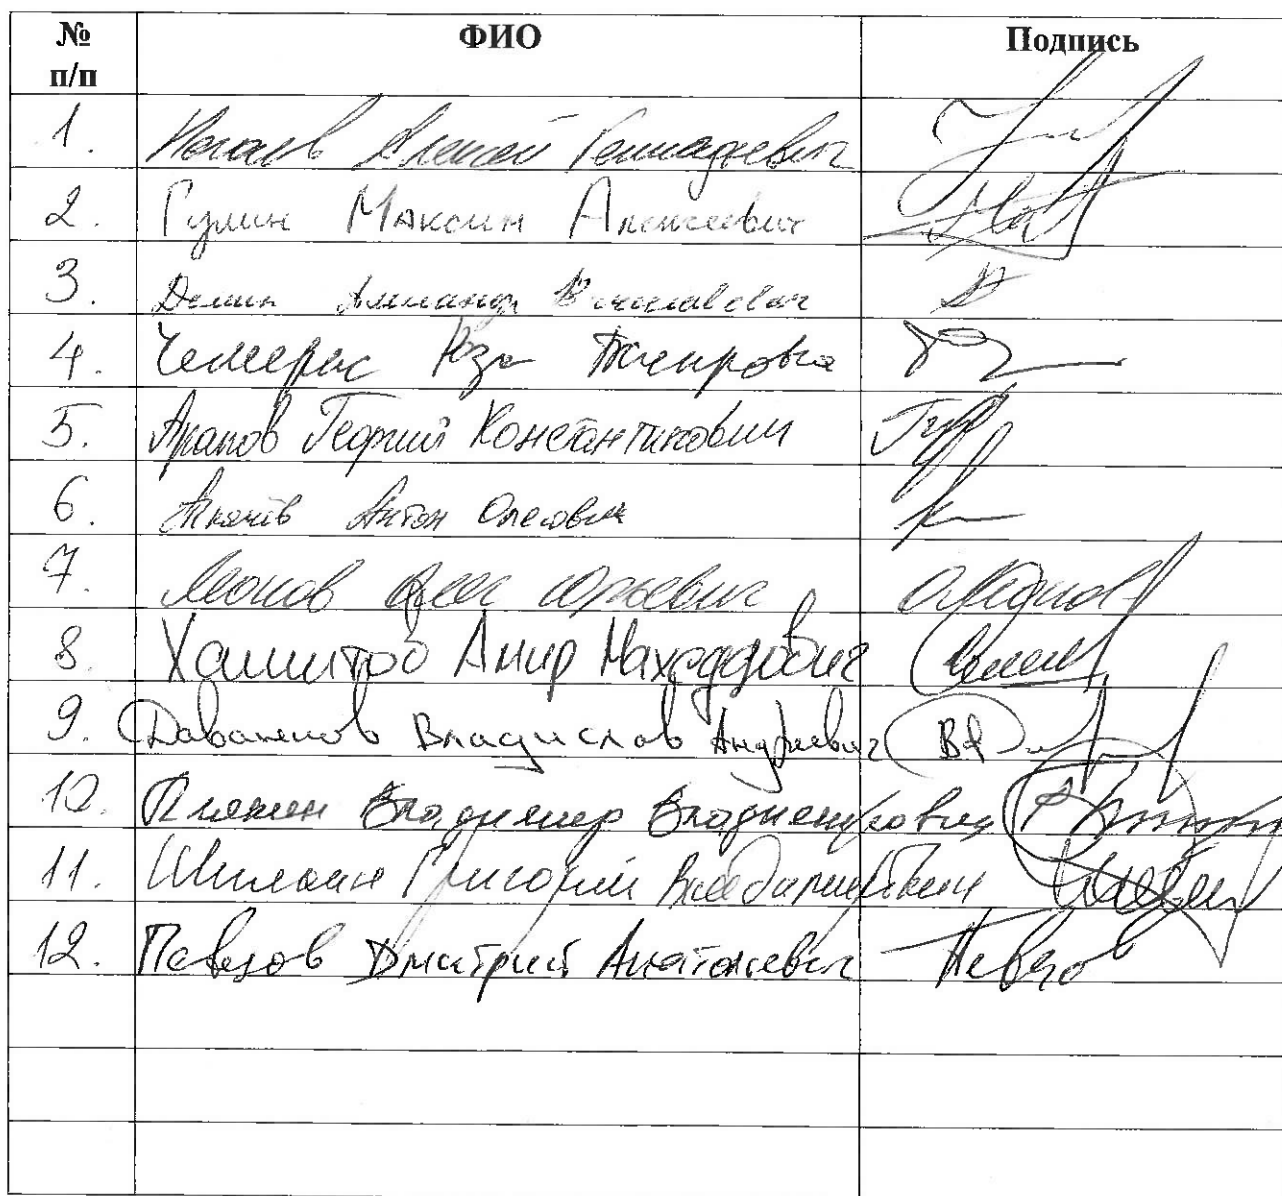 № п/п ФИО Подпись
1. Алексей Геннадьевич
2. Гулин Максим Алексеевич
3. Демин Александр Вячеславович
4. Чемерис Роза
5. Арапов Георгий Константинович
6. Ткачёв Антон Олегович
7. Леонов Олег Юрьевич
8. Хамитов Амир Махсудович
9. Даванков Владислав Андреевич
10. Плякин Владимир Владимирович
11. Шилкин Григорий Владимирович
12. Певцов Дмитрий Анатольевич Певцов